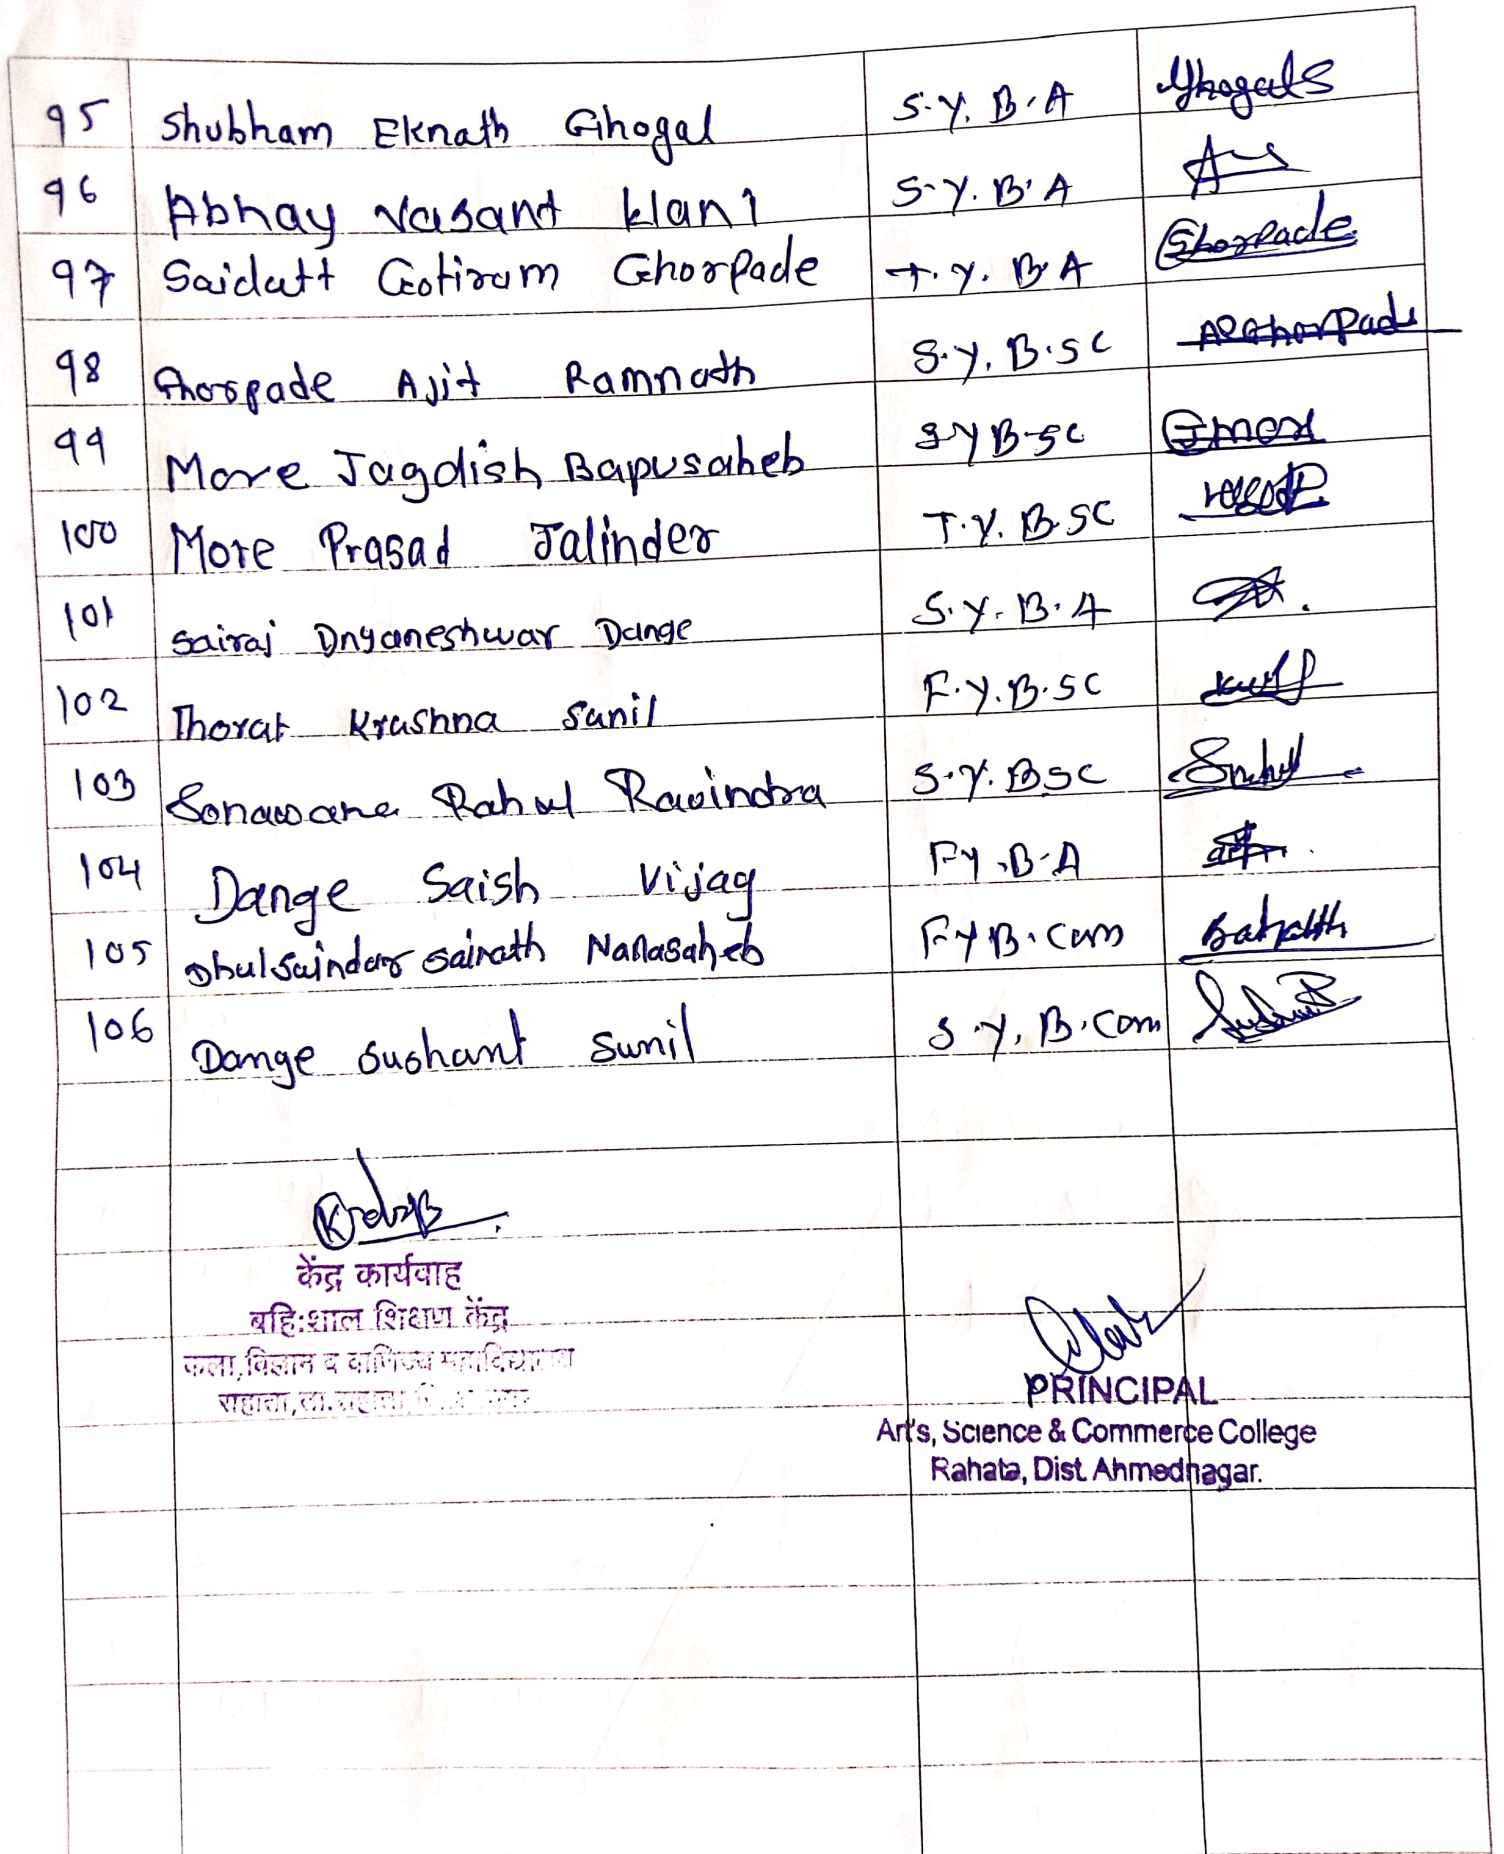 95 Shubham Eknath Ghogal S.Y.B.A GhogalS
96 Abhay Vasant S.Y.B.A
97 Saidatt Gotiram Ghorpade T.Y.B.A Ghorpade
98 Ghorpade Ajit Ramnath S.Y.B.SC ARGhorpade
99 More Jagdish Bapusaheb S Y B.SC
100 More Prasad Jalinder T.Y.B.SC
101 Sairaj Dnyaneshwar Dange S.Y.B.A
102 Thorat Krushna Sunil F.Y.B.SC
103 Sonawane Rahul Ravindra S.Y.BSC
104 Dange Saish Vijay FY.B.A
105 Dhulsaindar Sairath Nanasaheb F Y B.Com
106 Dange Sushant Sunil S.Y.B.Com
केंद्र कार्यवाह
बहि:शाल शिक्षण केंद्र
कला,विज्ञान व वाणिज्य महाविद्यालय
राहाता,ता.राहाता
PRINCIPAL
Art's, Science & Commerce College
Rahata, Dist. Ahmednagar.